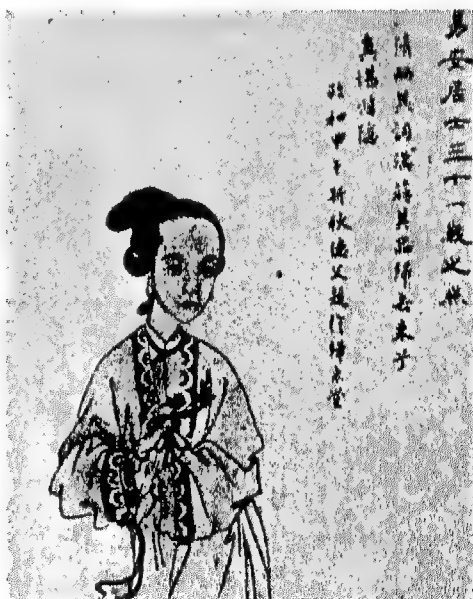 易安居士三十一歲之照
清麗其詞端莊其品歸去來兮
真堪偕隱
政和甲午新秋德父題於歸來堂